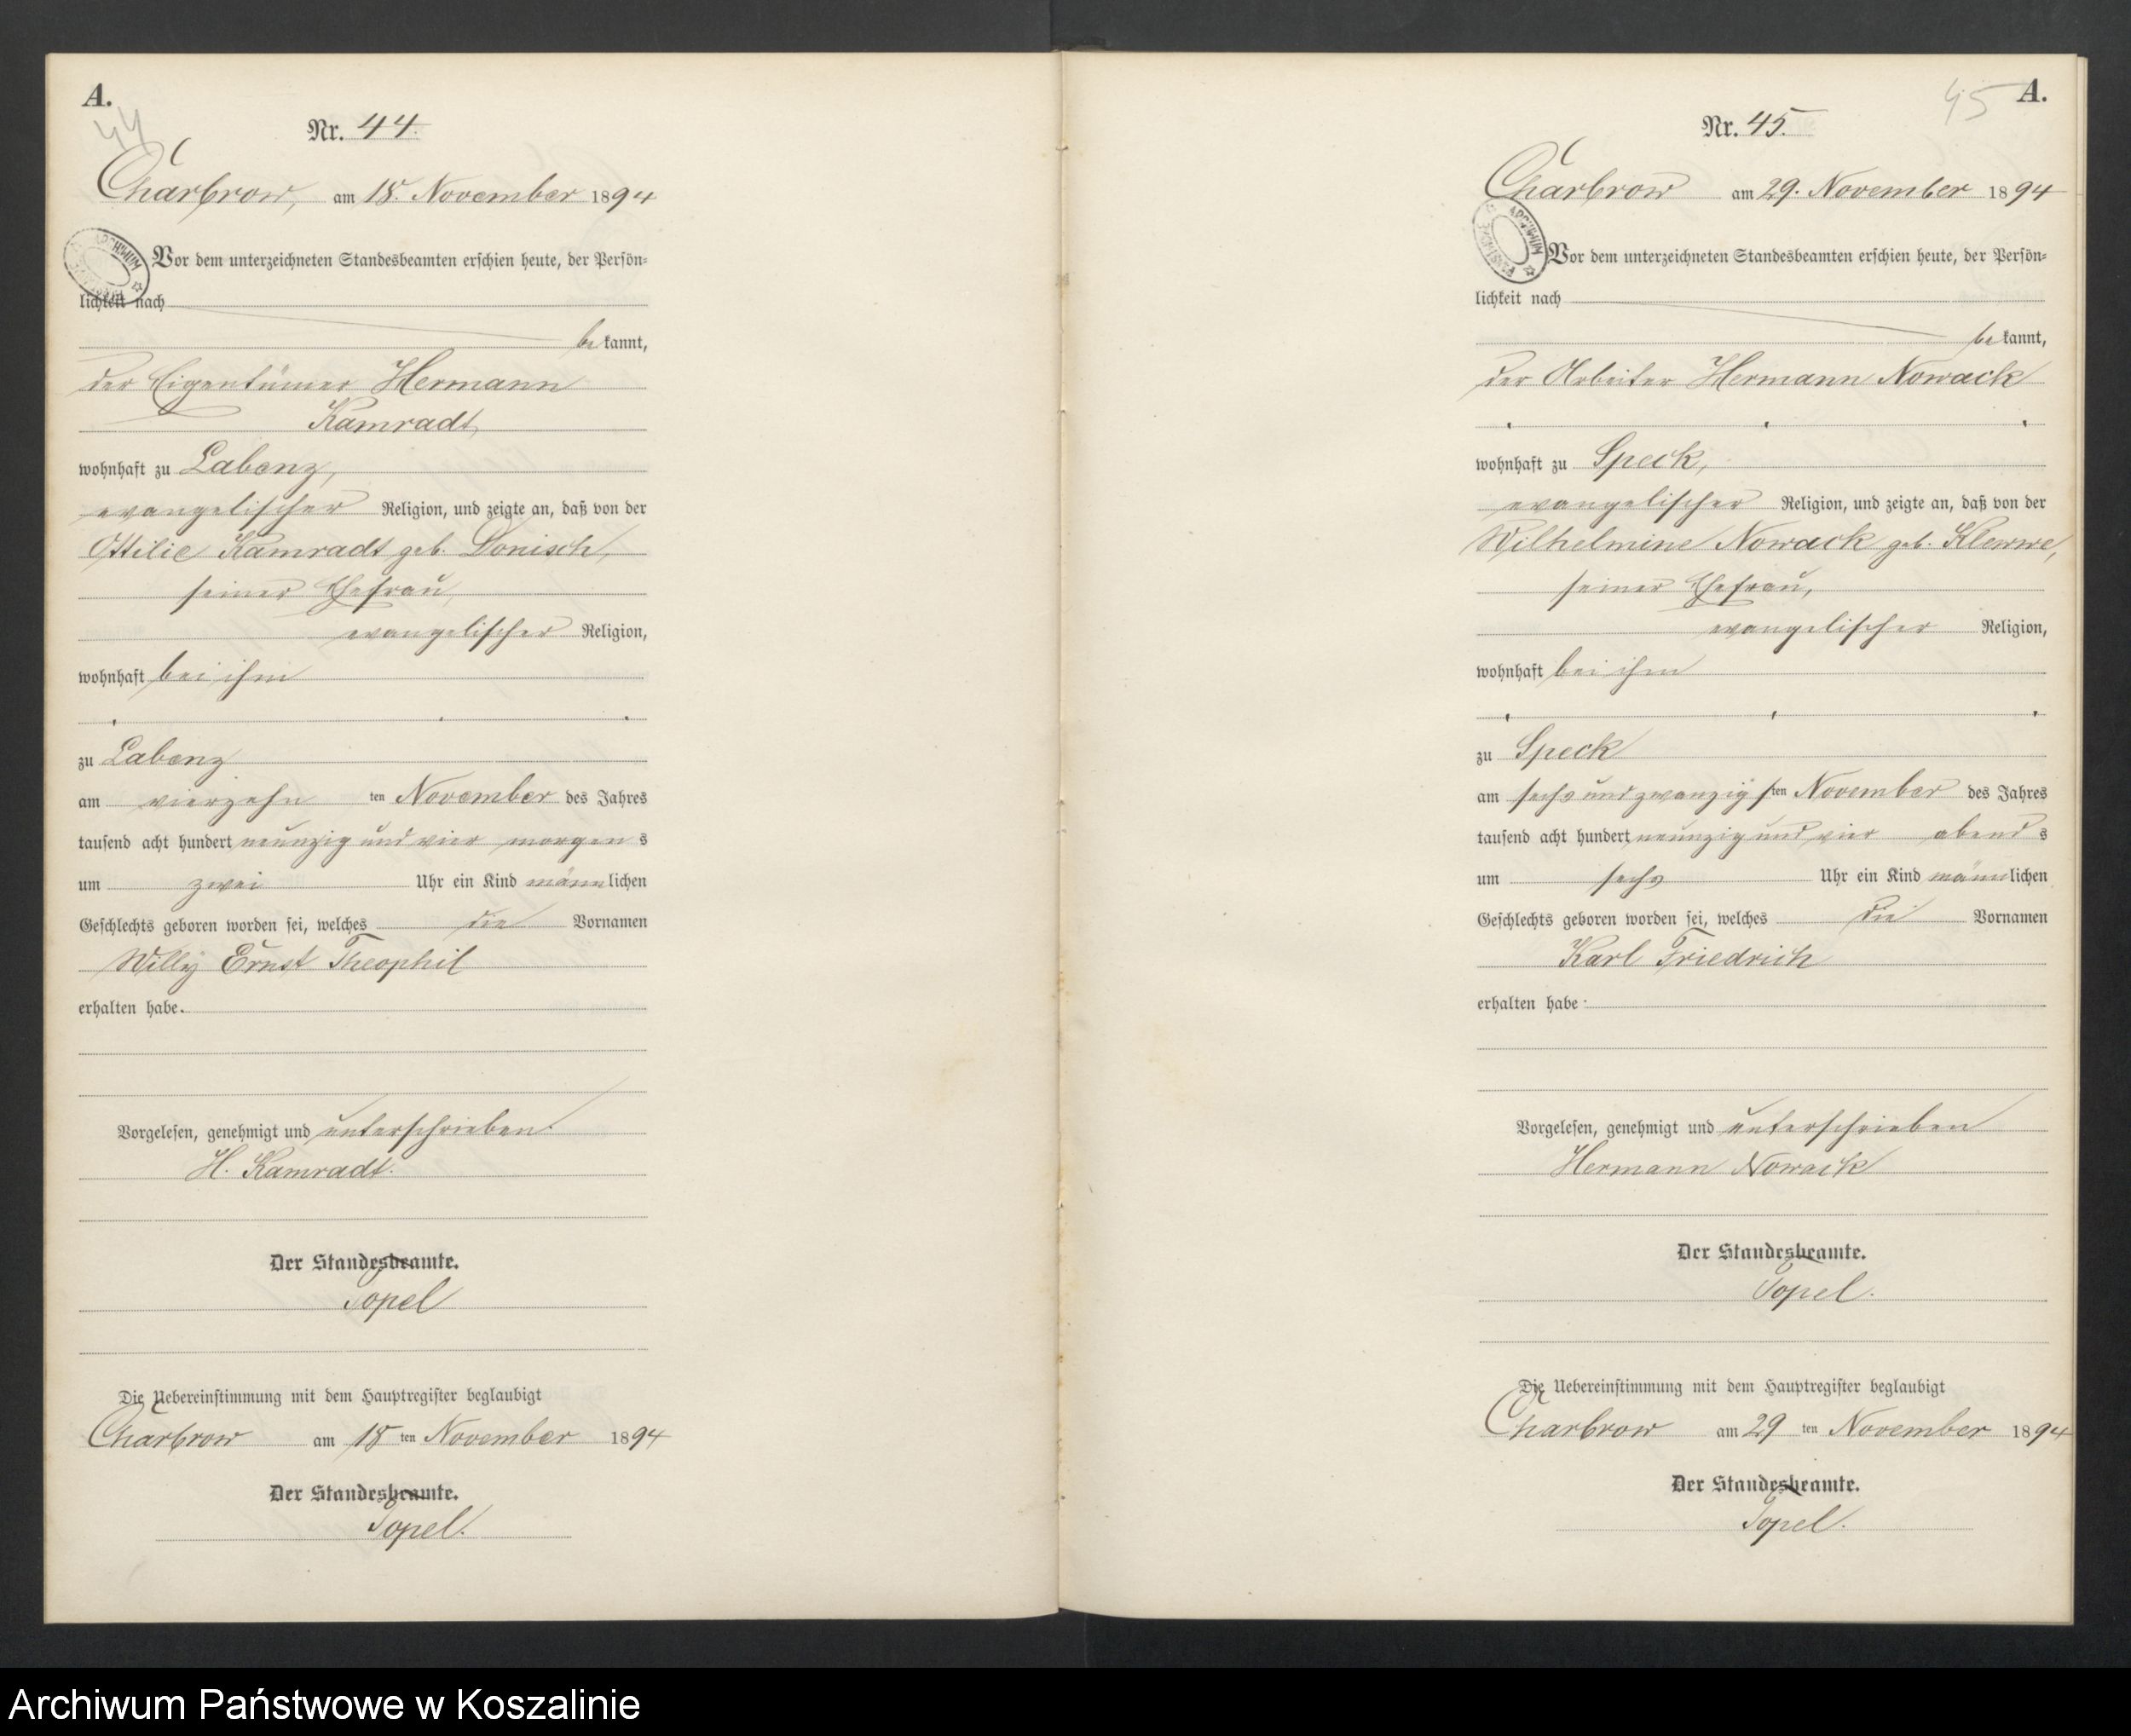 A.
44
Nr. 44.
Charbrow, am 18. November 1894
Vor dem unterzeichneten Standesbeamten erschien heute, der Persön-
lichkeit nach
bekannt,
der Eigentümer Hermann
Kamradt,
wohnhaft zu Labenz,
evangelischer Religion, und zeigte an, daß von der
Ottilie Kamradt geb. Donisch,
seiner Ehefrau,
evangelischer Religion,
wohnhaft bei ihm
zu Labenz
am vierzehn ten November des Jahres
tausend acht hundert neunzig und vier morgens
um zwei Uhr ein Kind männlichen
Geschlechts geboren worden sei, welches die Vornamen
Willy Ernst Theophil
erhalten habe.
Vorgelesen, genehmigt und unterschrieben.
H. Kamradt.
Der Standesbeamte.
Topel
Die Uebereinstimmung mit dem Hauptregister beglaubigt
Charbrow am 18 ten November 1894
Der Standesbeamte.
Topel.
45 A.
Nr. 45.
Charbrow am 29. November 1894
ARCHIWUM
Vor dem unterzeichneten Standesbeamten erschien heute, der Persön-
lichkeit nach
bekannt,
der Arbeiter Hermann Nowack
wohnhaft zu Speck,
evangelischer Religion, und zeigte an, daß von der
Wilhelmine Nowack geb. Klewwe,
seiner Ehefrau,
evangelischer Religion,
wohnhaft bei ihm
zu Speck
am sechs und zwanzigsten November des Jahres
tausend acht hundert neunzig und vier abends
um sechs Uhr ein Kind männlichen
Geschlechts geboren worden sei, welches die Vornamen
Karl Friedrich
erhalten habe.
Vorgelesen, genehmigt und unterschrieben
Hermann Nowack
Der Standesbeamte.
Topel.
Die Uebereinstimmung mit dem Hauptregister beglaubigt
Charbrow am 29 ten November 1894
Der Standesbeamte.
Topel.
Archiwum Państwowe w Koszalinie